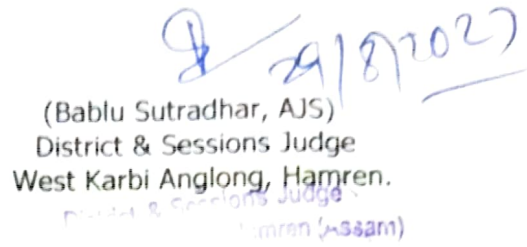 29/8/2023
(Bablu Sutradhar, AJS)
District & Sessions Judge
West Karbi Anglong, Hamren.
District & Sessions Judge
Hamren (Assam)